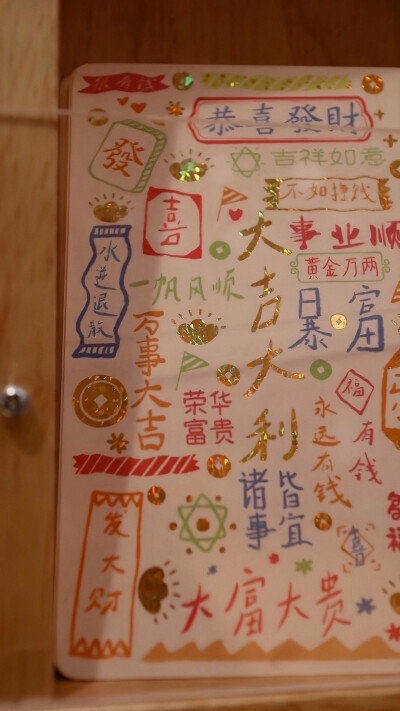 恭喜發財
發
吉祥如意
喜
不如挣钱
事业顺
水逆退散
一帆风顺
黄金万两
大吉大利
暴富
万事大吉
福
荣华
富贵
永远有钱
有钱
诸事
皆宜
发大财
大富大贵